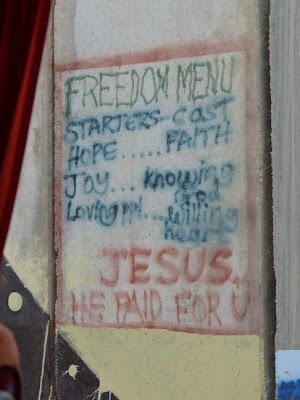 FREEDOM MENU
STARTERS - COST
HOPE ..... FAITH
JOY ... knowing
God
Loving ppl .... willing
heart
JESUS..
HE PAID FOR U